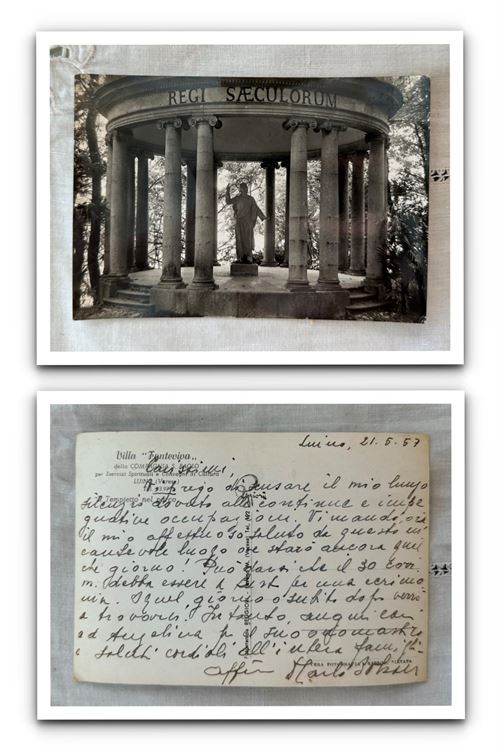 REGI SÆCULORUM
Villa "Fonteviva"
della COMPAGNIA S. PAOLO
per Esercizi Spirituali e Convegni di Cultura
LUINO (Varese)
Tempietto nel parco
Luino, 21.5.57
Carissimi,
Vi prego di scusare il mio lungo
silenzio dovuto alle continue e
occupazioni. Vi mando, ora
il mio affettuoso saluto da questo
luogo ove starò ancora qual
che giorno! Può darsi che il 30 corr.
m. debba essere a per una cerimo
nia. I quel giorno o subito dopo verrò
a trovarvi. Intanto, auguri cari
ad Angelina per il suo onomastico
e saluti cordiali all'intera famiglia
aff.
VERA FOTOGRAFIA